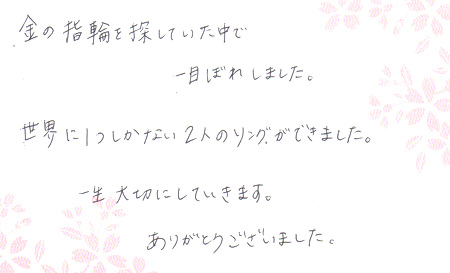 金の指輪を探していた中で
一目ぼれしました。
世界に1つしかない2人のリングができました。
一生大切にしていきます。
ありがとうございました。